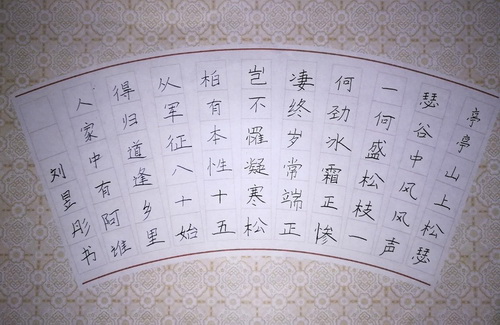 亭亭山上松瑟
瑟谷中风风声
一何盛松枝一
何劲冰霜正惨
凄终岁常端正
岂不罹凝寒松
柏有本性十五
从军征八十始
得归道逢乡里
人家中有阿谁
刘昱彤书